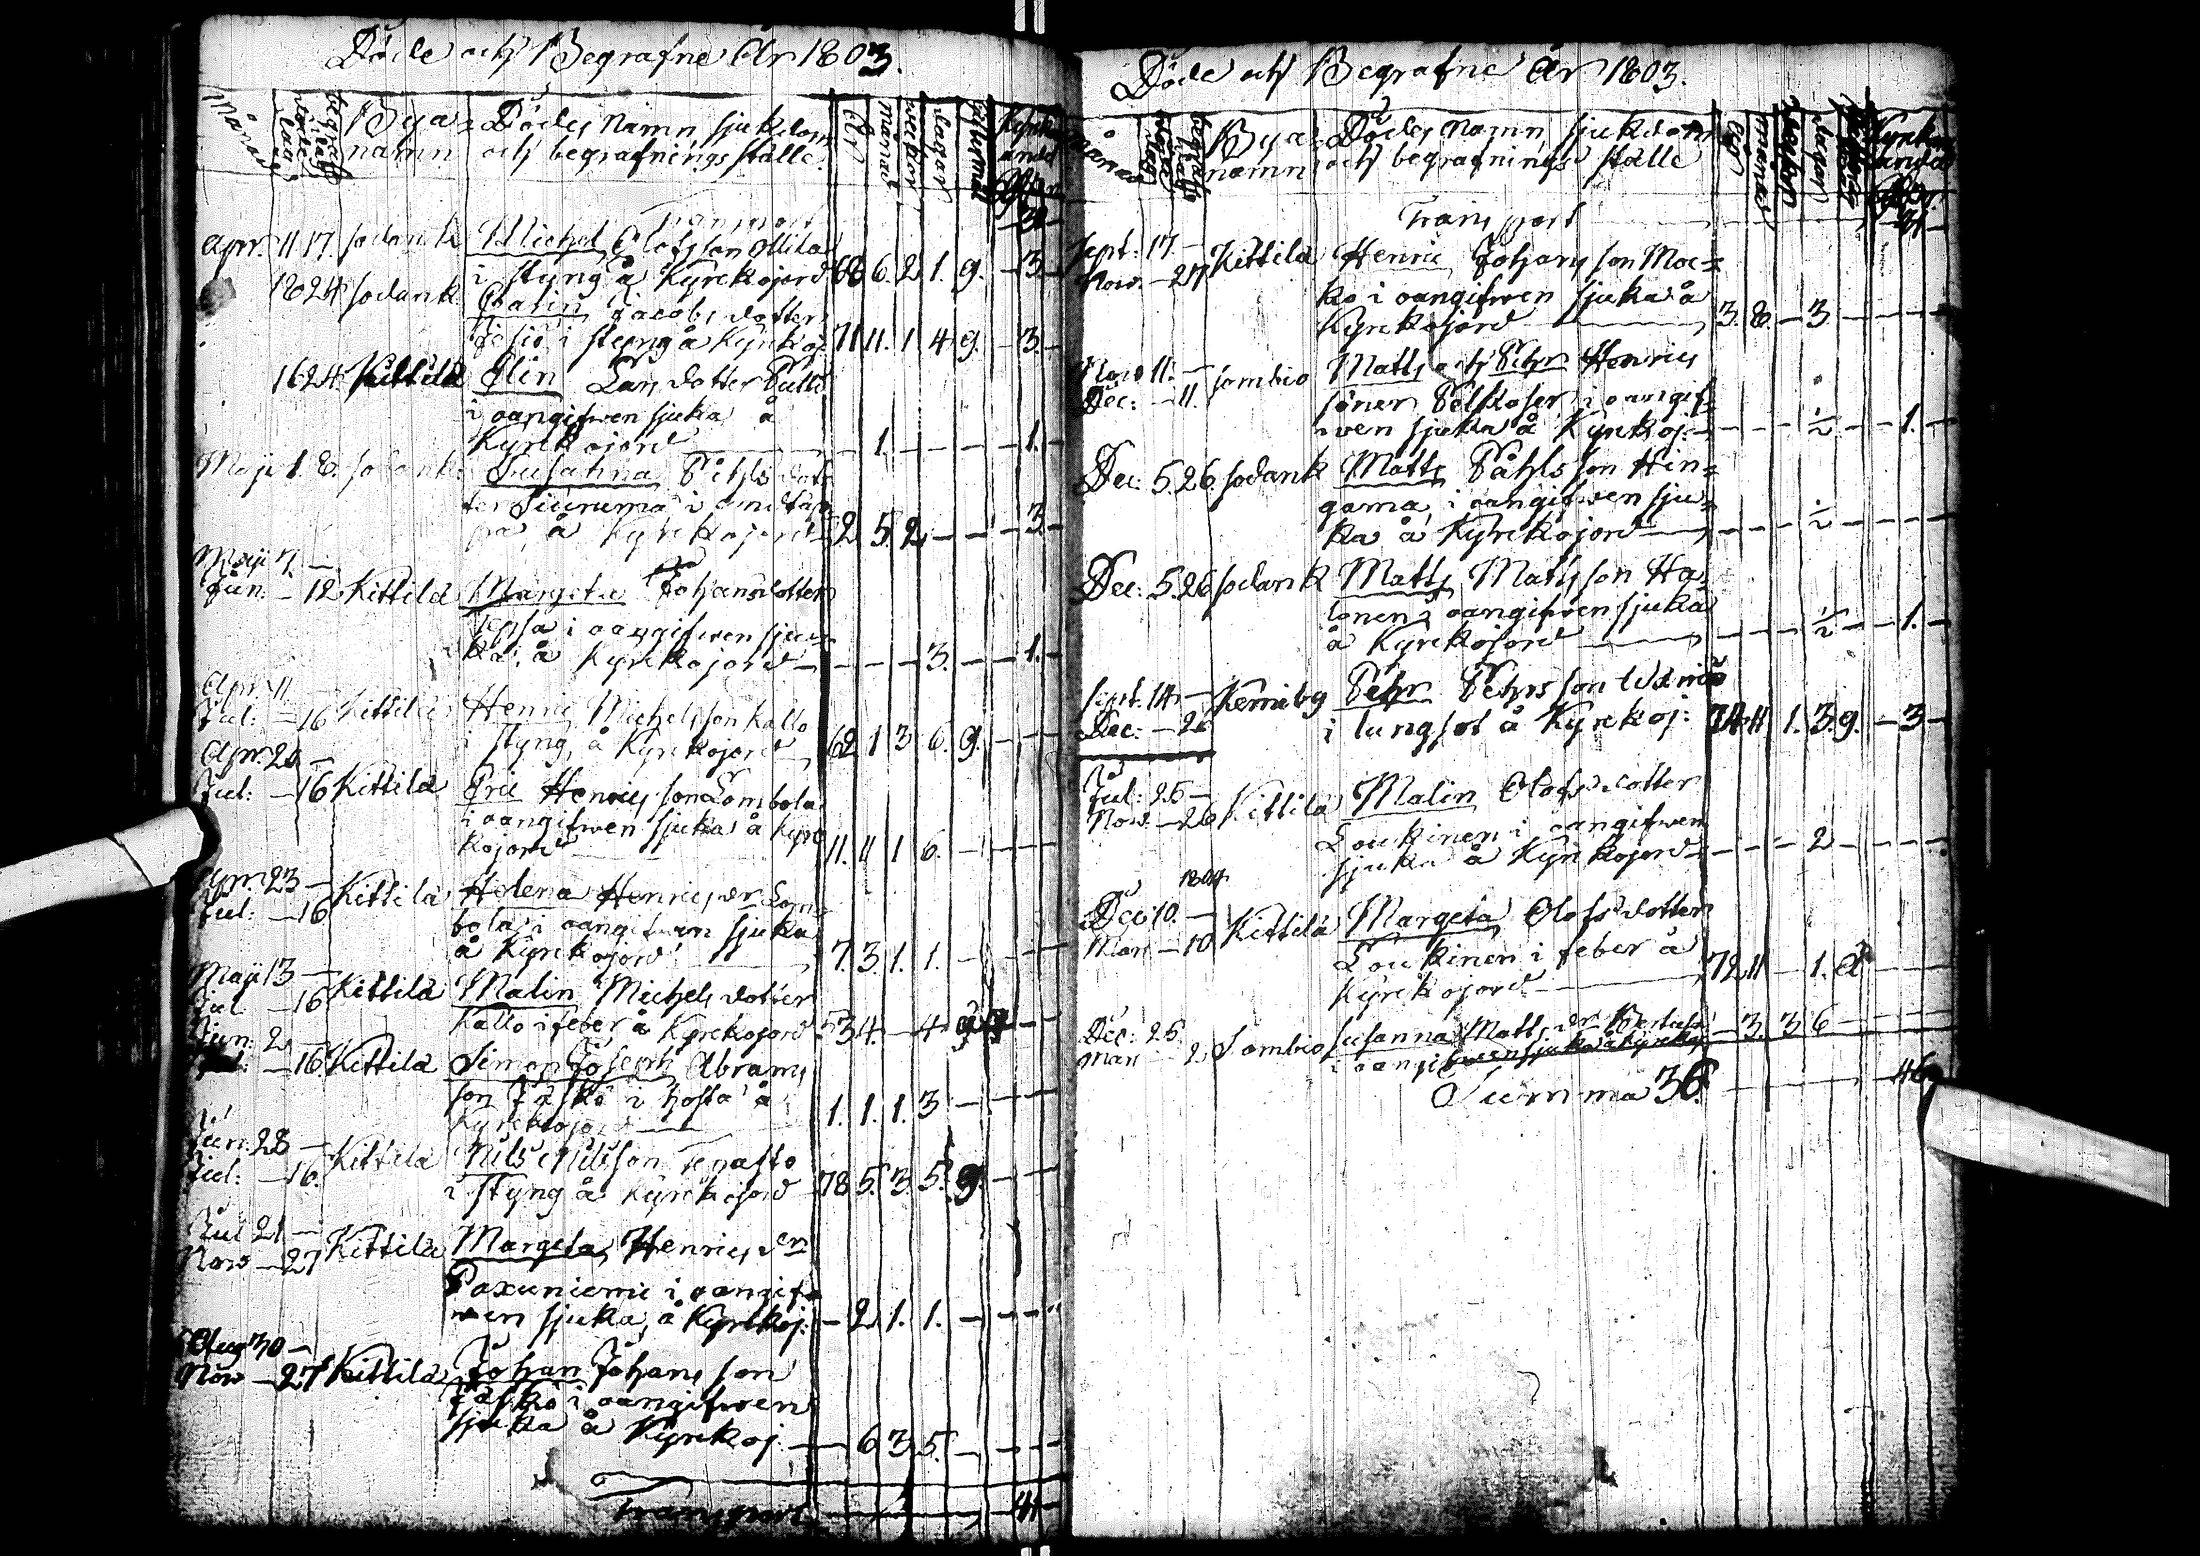 Döde och Begrafne År 1803.
Månad
Bya namn
Dödes Namn, sjukdom
och begrafnings ställe
År
månad
veckor
dagar
Transport
Apr. 11 17. Sodank. Michel Olofs son
i styng å Kyrckojord 68 6. 2 1. g. — 3. —
18 24 Sodank. Carin Jacobs dotter
i styng å Kyrckoj. 71 11. 1 4 g. — 3. —
16 24 Kittilä Elin Lars dotter
i oangifwen sjuka å
Kyrckojord — 1. — — — 1. —
Maji 1. 8. Sodank. Susanna Påhls dot-
ter
å Kyrckojord 2 5. 2 — — 3. —
Maji 7. —
Jun. — 12 Kittilä Margeta Johansdotter
i oangifwen sju-
ka, å Kyrckojord — — — 3. — 1. —
Apr. 11 —
Jul: — 16 Kittilä Henric Michels son Kallo
i styng, å Kyrckojord 62 1 3 6. g. — —
Apr. 20 —
Jul: — 16 Kittilä Eric Henrics son Lombola
i oangifwen sjuka å Kyrc-
kojord 11. 11 1 6. — — —
Apr. 23 —
Jul: — 16 Kittilä Helena Henrics dr Lom-
bola i oangifwen sjuka
å Kyrckojord 7. 3. 1. 1. — — —
Maji 13 —
Jul — 16 Kittilä Malin Michels dotter
Kallo i feber å Kyrckojord 53 4. — 4
Jun. 2 —
Jul: — 16. Kittilä Simon Joseph Abrams
son Jäskö i hosta å
Kyrckojord 1. 1. 1. 3 — — —
Jun. 28 —
Jul: — 16. Kittilä Nils Nilsson
i styng å Kyrckojord 78 5. 3. 5. g. — —
Jul 21 —
Nov — 27 Kittilä Margeta Henrics dr
Paxuniemi i oangif-
wen sjuka, å Kyrckoj: — 2 1. 1. — — —
Aug 30 —
Nov — 27 Kittilä Johan Johans son
Jäskö i oangifwen
sjuka å Kyrckoj — 6 3 5. — — —
Transport — 41 —
Döde och Begrafne År 1803.
Månad
Bya namn
Dödes Namn sjukdom
och begrafnings ställe
År
månad
dagar
Transport — 41 —
Sept. 17 —
Nov. — 27 Kittilä Henric Johans son Moc-
ko i oangifwen sjuka å
Kyrckojord 3. 8. — 3 — — —
Nov 11. —
Dec: — 11. Sombio Matts och Pehr Henrics
söner i oangif-
wen sjuka å Kyrckoj. — — — ½ — 1. —
Dec: 5. 26. Sodank Matts Påhls son Hin-
gama, i oangifwen sju-
ka å Kyrckojord — — — ½ — — —
Dec: 5. 26 Sodank Matts Mats son Ha-
lonen i oangifwen sjuka
å Kyrckojord — — — ½ — 1. —
Sept. 14 —
Dec: — 26 Kemiby Pehr Pehrs son
i lungsot å Kyrckoj: 11 1. 3. g. — 3 —
Jul: 25 —
Nov — 26 Kittilä Malin Olofs dotter
Loukinen i oangifwen
sjuka å Kyrckojord — — — 2 — — —
1804
Dec: 10. —
Mar. — 10 Kittilä Margeta Olofs dotter
Loukinen i feber å
Kyrckojord 72 11 — 1.
Dec: 25.
Mar — 2 Sombio Susanna Matts dr — 3. 3 6 — — —
i oangifwen sjuka å Kyrckoj
Summa 36. — 46